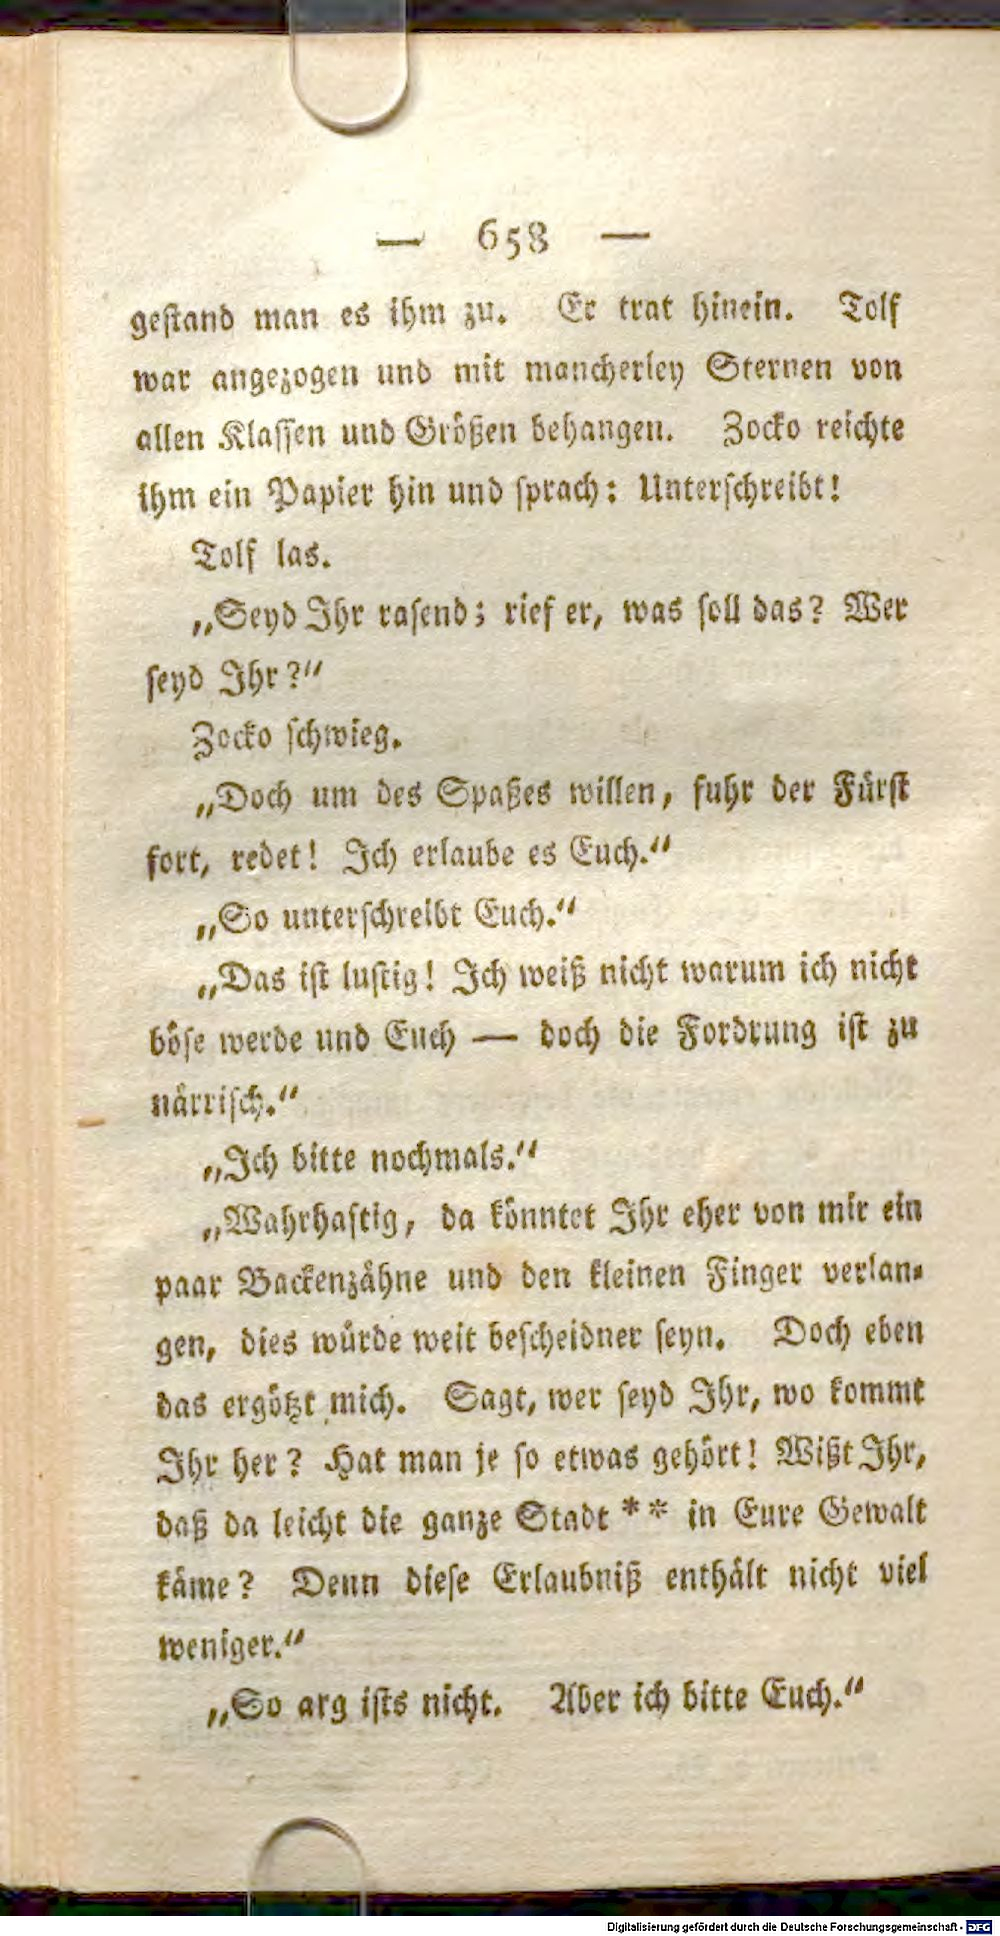 — 658 —
gestand man es ihm zu. Er trat hinein. Tolf
war angezogen und mit mancherley Sternen von
allen Klassen und Größen behangen. Zocko reichte
ihm ein Papier hin und sprach: Unterschreibt!
Tolf las.
„Seyd Ihr rasend; rief er, was soll das? Wer
seyd Ihr?“
Zocko schwieg.
„Doch um des Spaßes willen, fuhr der Fürst
fort, redet! Ich erlaube es Euch.“
„So unterschreibt Euch.“
„Das ist lustig! Ich weiß nicht warum ich nicht
böse werde und Euch — doch die Fordrung ist zu
närrisch.“
„Ich bitte nochmals.“
„Wahrhaftig, da könntet Ihr eher von mir ein
paar Backenzähne und den kleinen Finger verlan-
gen, dies würde weit bescheidner seyn. Doch eben
das ergötzt mich. Sagt, wer seyd Ihr, wo kommt
Ihr her? Hat man je so etwas gehört! Wißt Ihr,
daß da leicht die ganze Stadt ** in Eure Gewalt
käme? Denn diese Erlaubniß enthält nicht viel
weniger.“
„So arg ists nicht. Aber ich bitte Euch.“
Digitalisierung gefördert durch die Deutsche Forschungsgemeinschaft - DFG